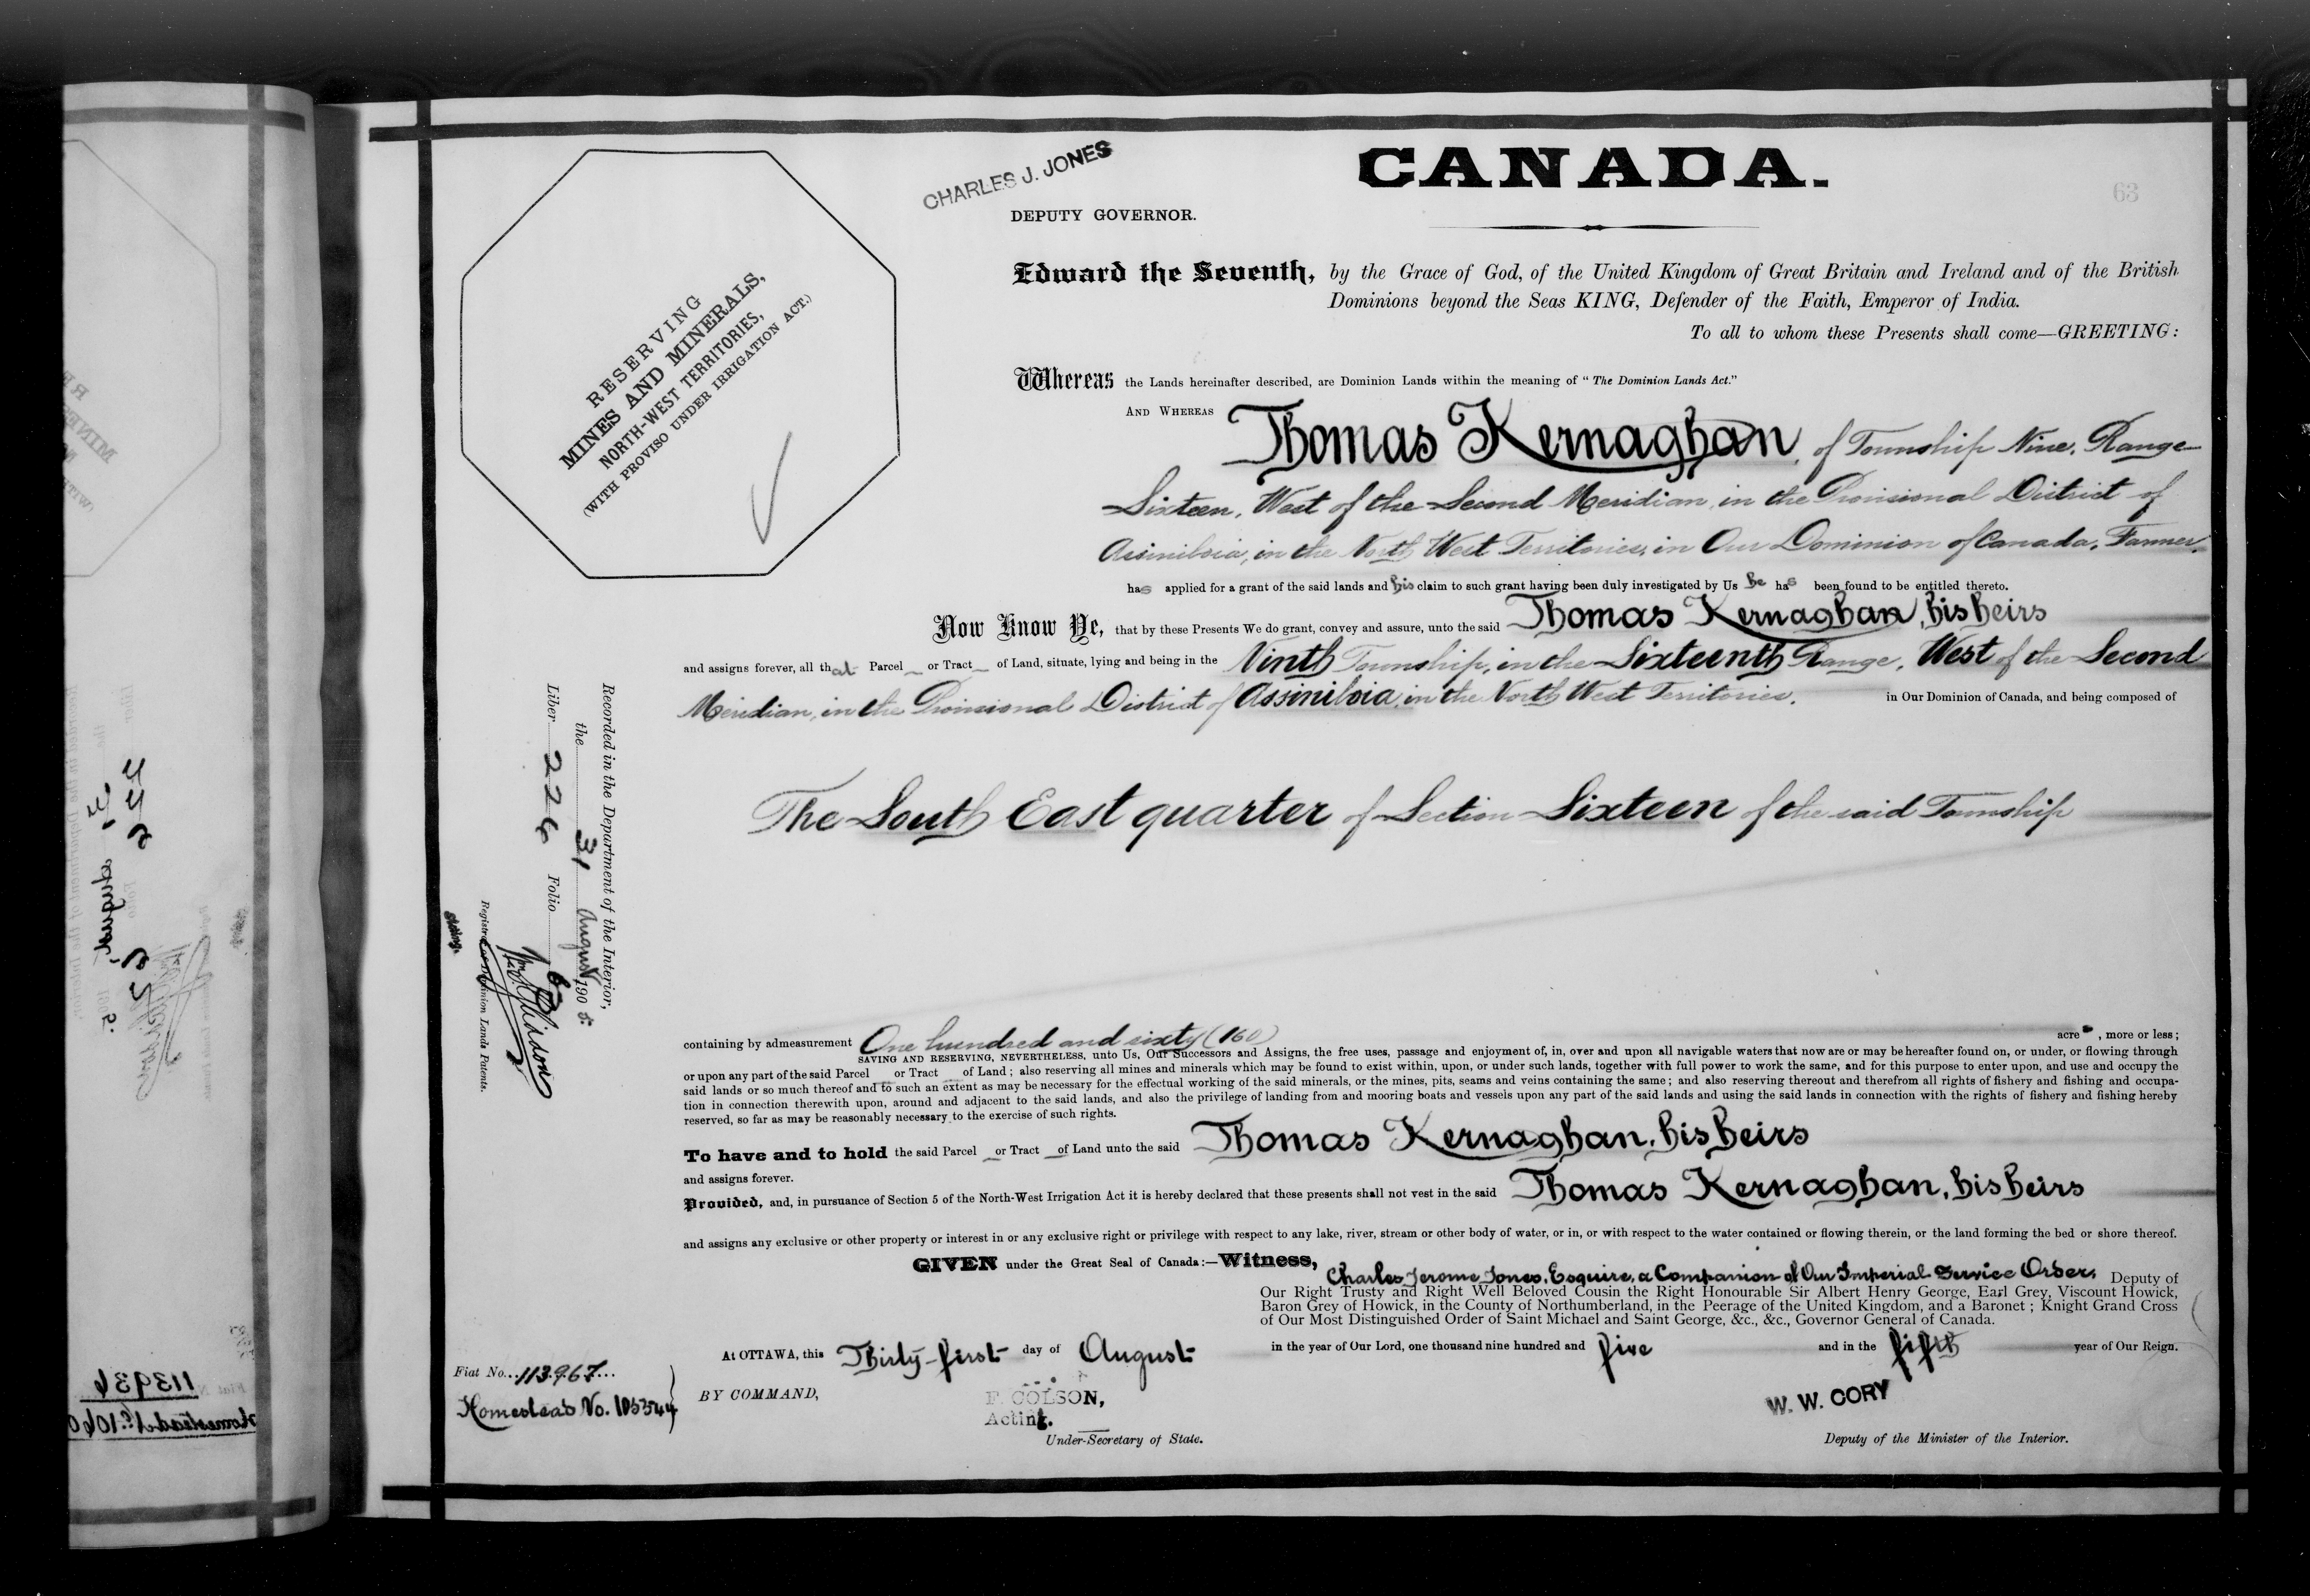 CHARLES J. JONES
CANADA.
63
DEPUTY GOVERNOR.
RESERVING
MINES AND MINERALS,
NORTH-WEST TERRITORIES,
(WITH PROVISO UNDER IRRIGATION ACT.)
Edward the Seventh, by the Grace of God, of the United Kingdom of Great Britain and Ireland and of the British
Dominions beyond the Seas KING, Defender of the Faith, Emperor of India.
To all to whom these Presents shall come—GREETING:
Whereas the Lands hereinafter described, are Dominion Lands within the meaning of "The Dominion Lands Act."
AND WHEREAS Thomas Kernaghan, of Township Nine, Range
Sixteen, West of the Second Meridian, in the Provisional District of
Assiniboia, in the North West Territories, in Our Dominion of Canada, Farmer,
has applied for a grant of the said lands and his claim to such grant having been duly investigated by Us he has been found to be entitled thereto.
Now Know Ye, that by these Presents We do grant, convey and assure, unto the said Thomas Kernaghan, his heirs
and assigns forever, all that Parcel or Tract of Land, situate, lying and being in the Ninth Township, in the Sixteenth Range, West of the Second
Meridian, in the Provisional District of Assiniboia, in the North West Territories, in Our Dominion of Canada, and being composed of
The South East quarter of Section Sixteen of the said Township
containing by admeasurement One hundred and sixty (160) acres, more or less;
SAVING AND RESERVING, NEVERTHELESS, unto Us, Our Successors and Assigns, the free uses, passage and enjoyment of, in, over and upon all navigable waters that now are or may be hereafter found on, or under, or flowing through
or upon any part of the said Parcel or Tract of Land; also reserving all mines and minerals which may be found to exist within, upon, or under such lands, together with full power to work the same, and for this purpose to enter upon, and use and occupy the
said lands or so much thereof and to such an extent as may be necessary for the effectual working of the said minerals, or the mines, pits, seams and veins containing the same; and also reserving thereout and therefrom all rights of fishery and fishing and occupa-
tion in connection therewith upon, around and adjacent to the said lands, and also the privilege of landing from and mooring boats and vessels upon any part of the said lands and using the said lands in connection with the rights of fishery and fishing hereby
reserved, so far as may be reasonably necessary to the exercise of such rights.
To have and to hold the said Parcel or Tract of Land unto the said Thomas Kernaghan, his heirs
and assigns forever.
Provided, and, in pursuance of Section 5 of the North-West Irrigation Act it is hereby declared that these presents shall not vest in the said Thomas Kernaghan, his heirs
and assigns any exclusive or other property or interest in or any exclusive right or privilege with respect to any lake, river, stream or other body of water, or in, or with respect to the water contained or flowing therein, or the land forming the bed or shore thereof.
GIVEN under the Great Seal of Canada:—Witness, Charles Jerome Jones, Esquire, a Companion of Our Imperial Service Order, Deputy of
Our Right Trusty and Right Well Beloved Cousin the Right Honourable Sir Albert Henry George, Earl Grey, Viscount Howick,
Baron Grey of Howick, in the County of Northumberland, in the Peerage of the United Kingdom, and a Baronet; Knight Grand Cross
of Our Most Distinguished Order of Saint Michael and Saint George, &c., &c., Governor General of Canada.
At OTTAWA, this Thirty-first day of August in the year of Our Lord, one thousand nine hundred and five and in the fifth year of Our Reign.
Fiat No. 113967
Homestead No. 105344
BY COMMAND,
F. COLSON,
Acting.
Under-Secretary of State.
W. W. CORY
Deputy of the Minister of the Interior.
Recorded in the Department of the Interior,
the 31 August 1905.
Liber 226 Folio 63
Acting
Registrar of Dominion Lands Patents.